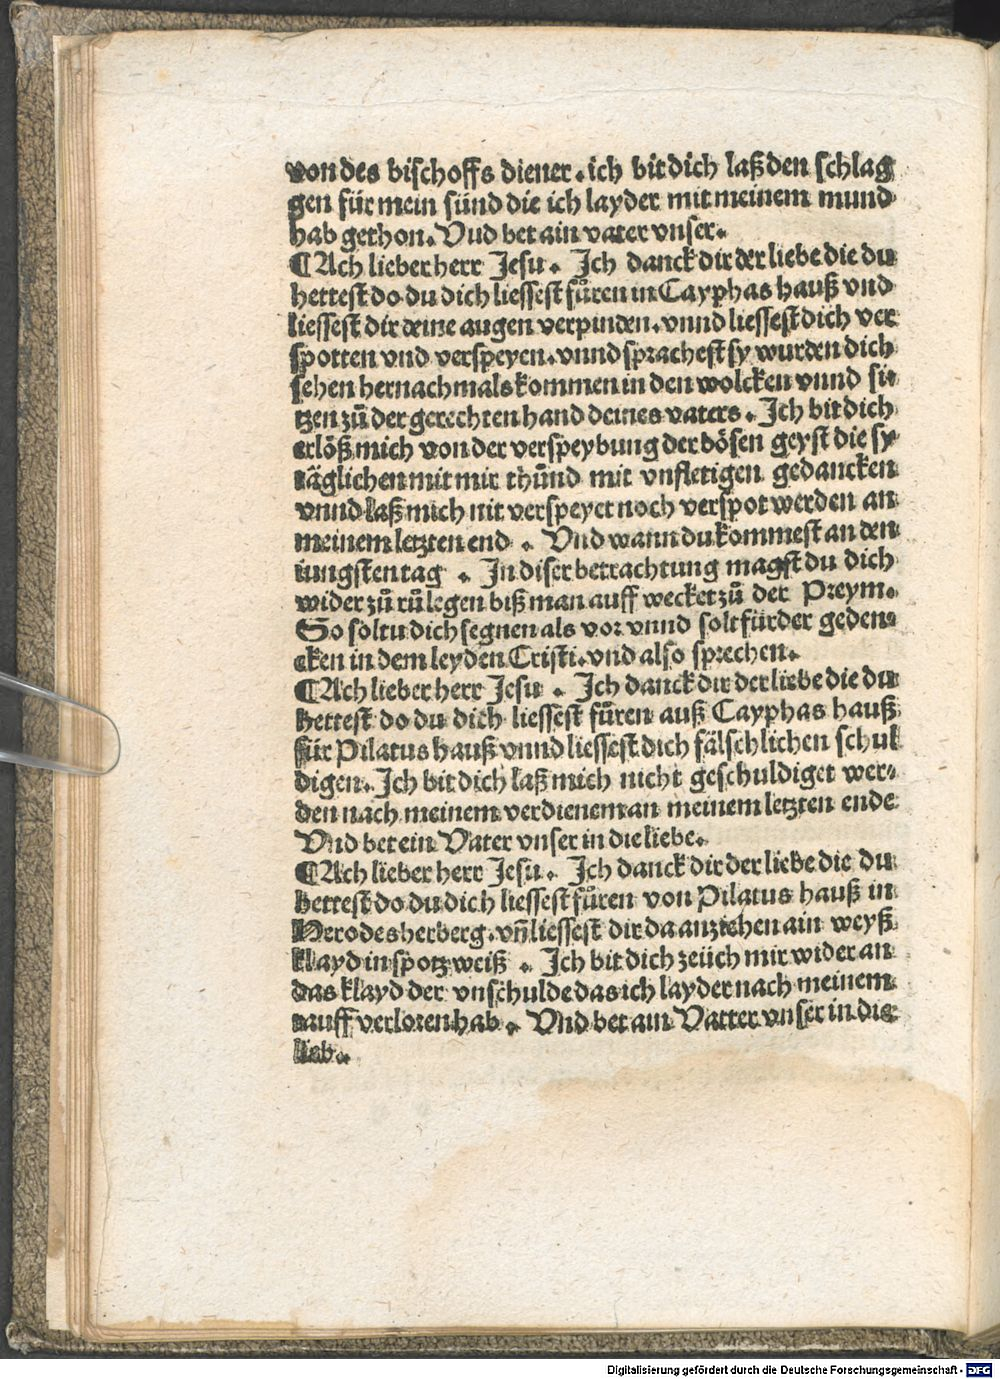 von des bischoffs diener. ich bit dich laß den schlag
gen für mein sünd die ich layder mit meinem mund
hab gethon. Vnd bet ain vater vnser.
¶ Ach lieber herr Jesu. Ich danck dir der liebe die du
hettest do du dich liessest fůren in Cayphas hauß vnd
liessest dir deine augen verpinden. vnnd liessest dich ver
spotten vnd verspeyen. vnnd sprachest sy wurden dich
sehen hernachmals kommen in den wolcken vnnd sit
tzen zů der gerechten hand deines vaters. Ich bit dich
erlöß mich von der verspeybung der bösen geyst die sy
täglichen mit mir thůnd mit vnfletigen gedancken
vnnd laß mich nit verspeyet noch verspot werden an
meinem letzten end. Vnd wann du kommest an den
iungsten tag. In diser betrachtung magst du dich
wider zů rů legen biß man auff wecket zů der Preym.
So soltu dich segnen als vor vnnd solt fürder geden⸗
cken in dem leyden Cristi. vnd also sprechen.
¶ Ach lieber herr Jesu. Ich danck dir der liebe die du
hettest do du dich liessest fůren auß Cayphas hauß
für Pilatus hauß vnnd liessest dich fälschlichen schul
digen. Ich bit dich laß mich nicht geschuldiget wer⸗
den nach meinem verdienem an meinem letzten ende
Vnd bet ein Vater vnser in die liebe.
¶ Ach lieber herr Jesu. Ich danck dir der liebe die du
hettest do du dich liessest fůren von Pilatus hauß in
Herodes herberg. vñ liessest dir da anziehen ain weyß
klayd in spotz weiß. Ich bit dich zeüch mir wider an
das klayd der vnschulde das ich layder nach meinem
tauff verloren hab. Vnd bet ain Vatter vnser in die
lieb.
Digitalisierung gefördert durch die Deutsche Forschungsgemeinschaft - DFG